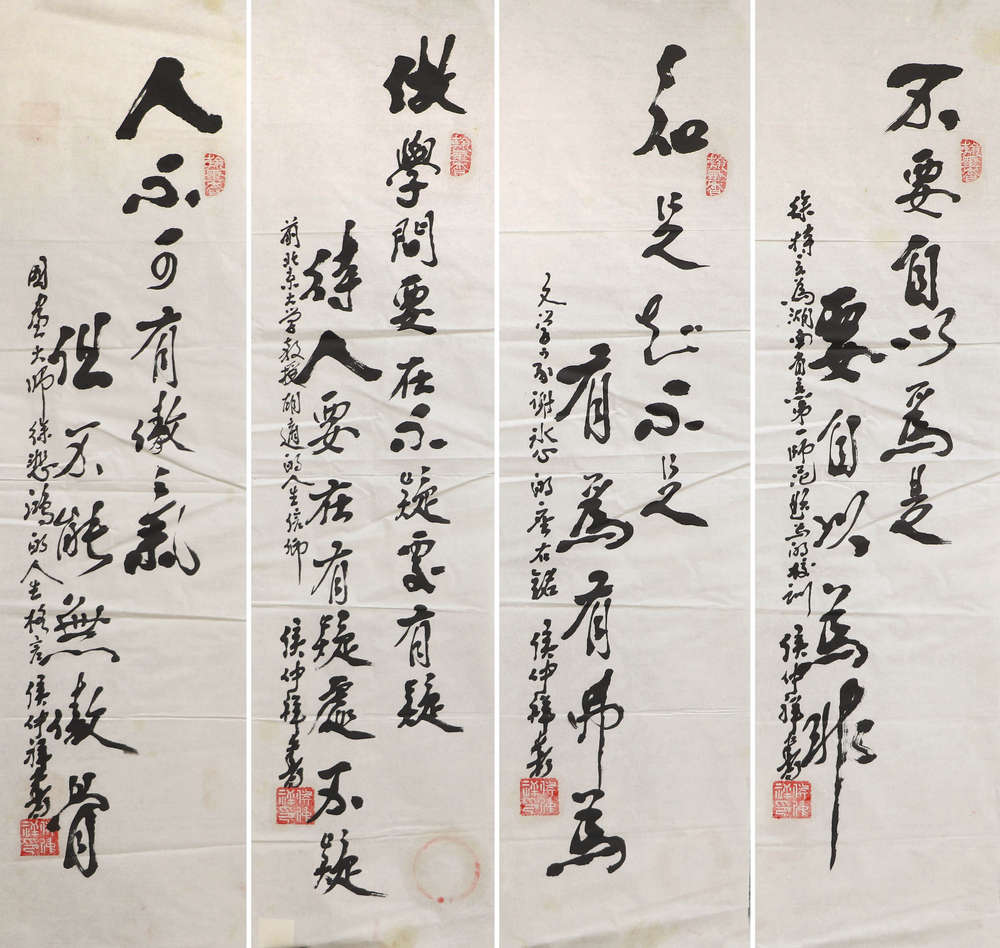 不要自以為是
要自以為非
徐特立為湖南省立第一师范题写的校训 侯仲祥書
知足知不足
有為有弗為
文学大家谢冰心的座右銘 侯仲祥書
做學問要在不疑處有疑
待人要在有疑處不疑
前北京大学教授胡適的人生信條 侯仲祥書
人不可有傲氣
但不能無傲骨
國畫大师徐悲鴻的人生格言 侯仲祥書